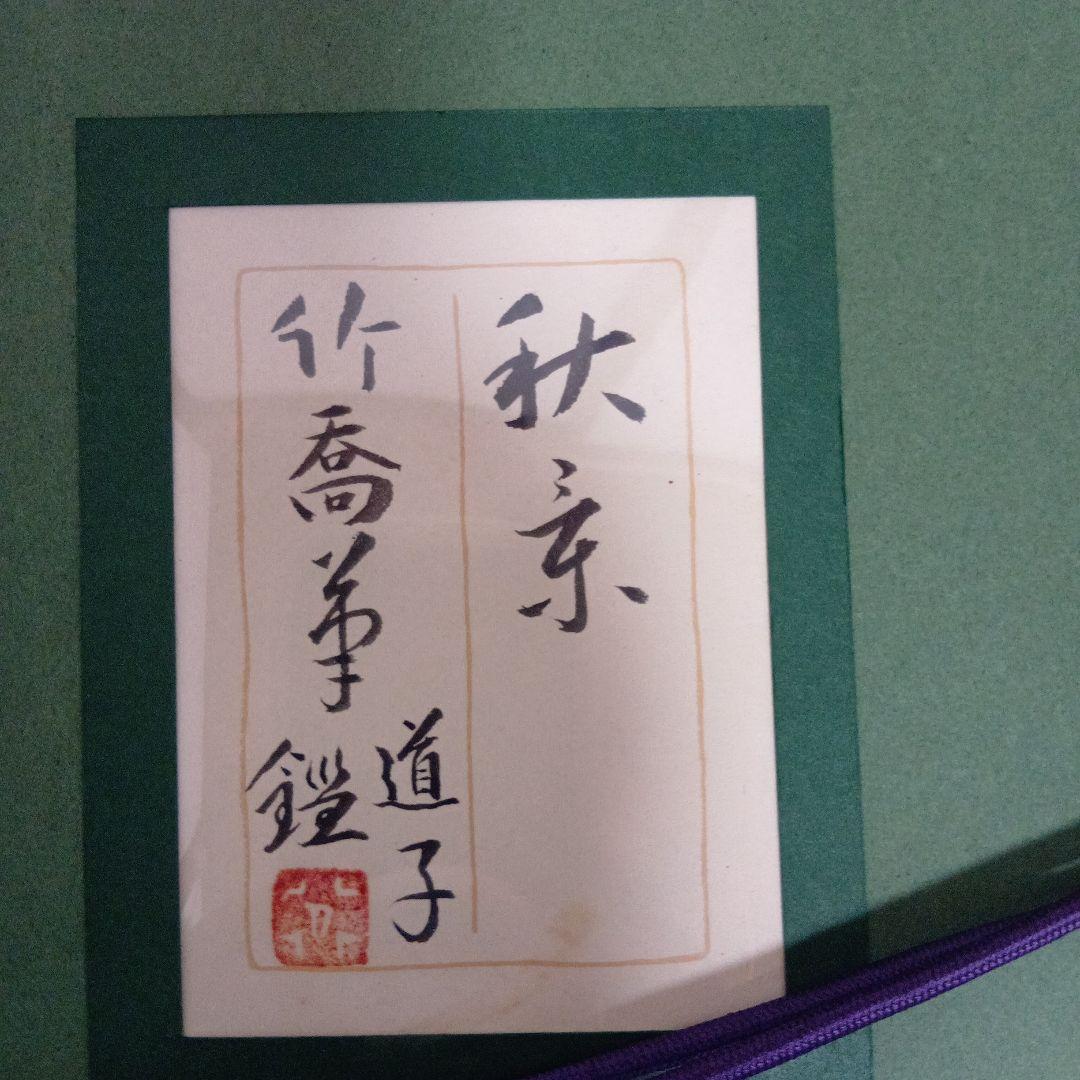 秋景
竹喬筆
道子
鑑